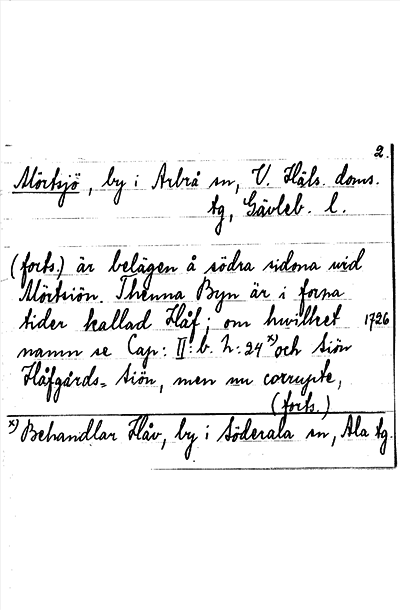 2.
Mörtsjö, by i Arbrå sn, V. Häls. doms.
tg, Gävleb. l.
(forts.) är belägen å södra sidona wid
Mörtsiön. Thenna Byn är i forna
tider kallad Håf; om hwilket 1726
namn se Cap: II: b. h: 24 x) och Siön
Håfgårds= Siön, men nu corrupte,
(forts.)
x) Behandlar Håv, by i Söderala sn, Ala tg.